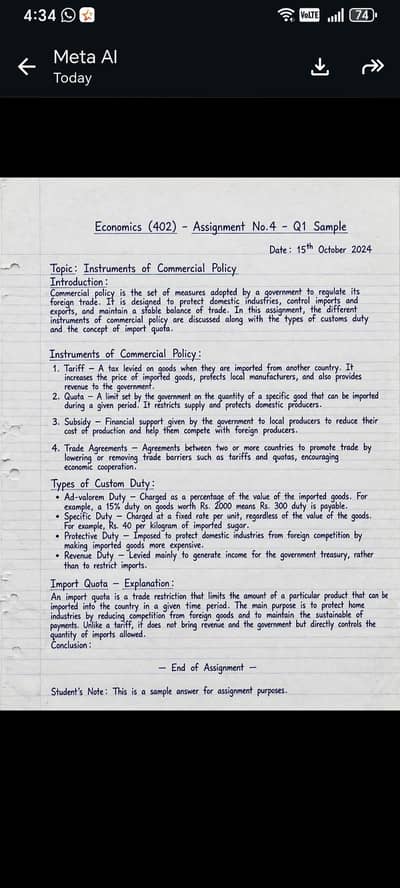 4:34
VoLTE
74
Meta AI
Today
Economics (402) – Assignment No.4 – Q1 Sample
Date: 15th October 2024
Topic: Instruments of Commercial Policy
Introduction:
Commercial policy is the set of measures adopted by a government to regulate its
foreign trade. It is designed to protect domestic industries, control imports and
exports, and maintain a stable balance of trade. In this assignment, the different
instruments of commercial policy are discussed along with the types of customs duty
and the concept of import quota.
Instruments of Commercial Policy:
1. Tariff – A tax levied on goods when they are imported from another country. It
increases the price of imported goods, protects local manufacturers, and also provides
revenue to the government.
2. Quota – A limit set by the government on the quantity of a specific good that can be imported
during a given period. It restricts supply and protects domestic producers.
3. Subsidy – Financial support given by the government to local producers to reduce their
cost of production and help them compete with foreign producers.
4. Trade Agreements – Agreements between two or more countries to promote trade by
lowering or removing trade barriers such as tariffs and quotas, encouraging
economic cooperation.
Types of Custom Duty:
• Ad-valorem Duty – Charged as a percentage of the value of the imported goods. For
example, a 15% duty on goods worth Rs. 2000 means Rs. 300 duty is payable.
• Specific Duty – Charged at a fixed rate per unit, regardless of the value of the goods.
For example, Rs. 40 per kilogram of imported sugar.
• Protective Duty – Imposed to protect domestic industries from foreign competition by
making imported goods more expensive.
• Revenue Duty – Levied mainly to generate income for the government treasury, rather
than to restrict imports.
Import Quota – Explanation:
An import quota is a trade restriction that limits the amount of a particular product that can be
imported into the country in a given time period. The main purpose is to protect home
industries by reducing competition from foreign goods and to maintain the sustainable of
payments. Unlike a tariff, it does not bring revenue and the government but directly controls the
quantity of imports allowed.
Conclusion:
– End of Assignment –
Student's Note: This is a sample answer for assignment purposes.